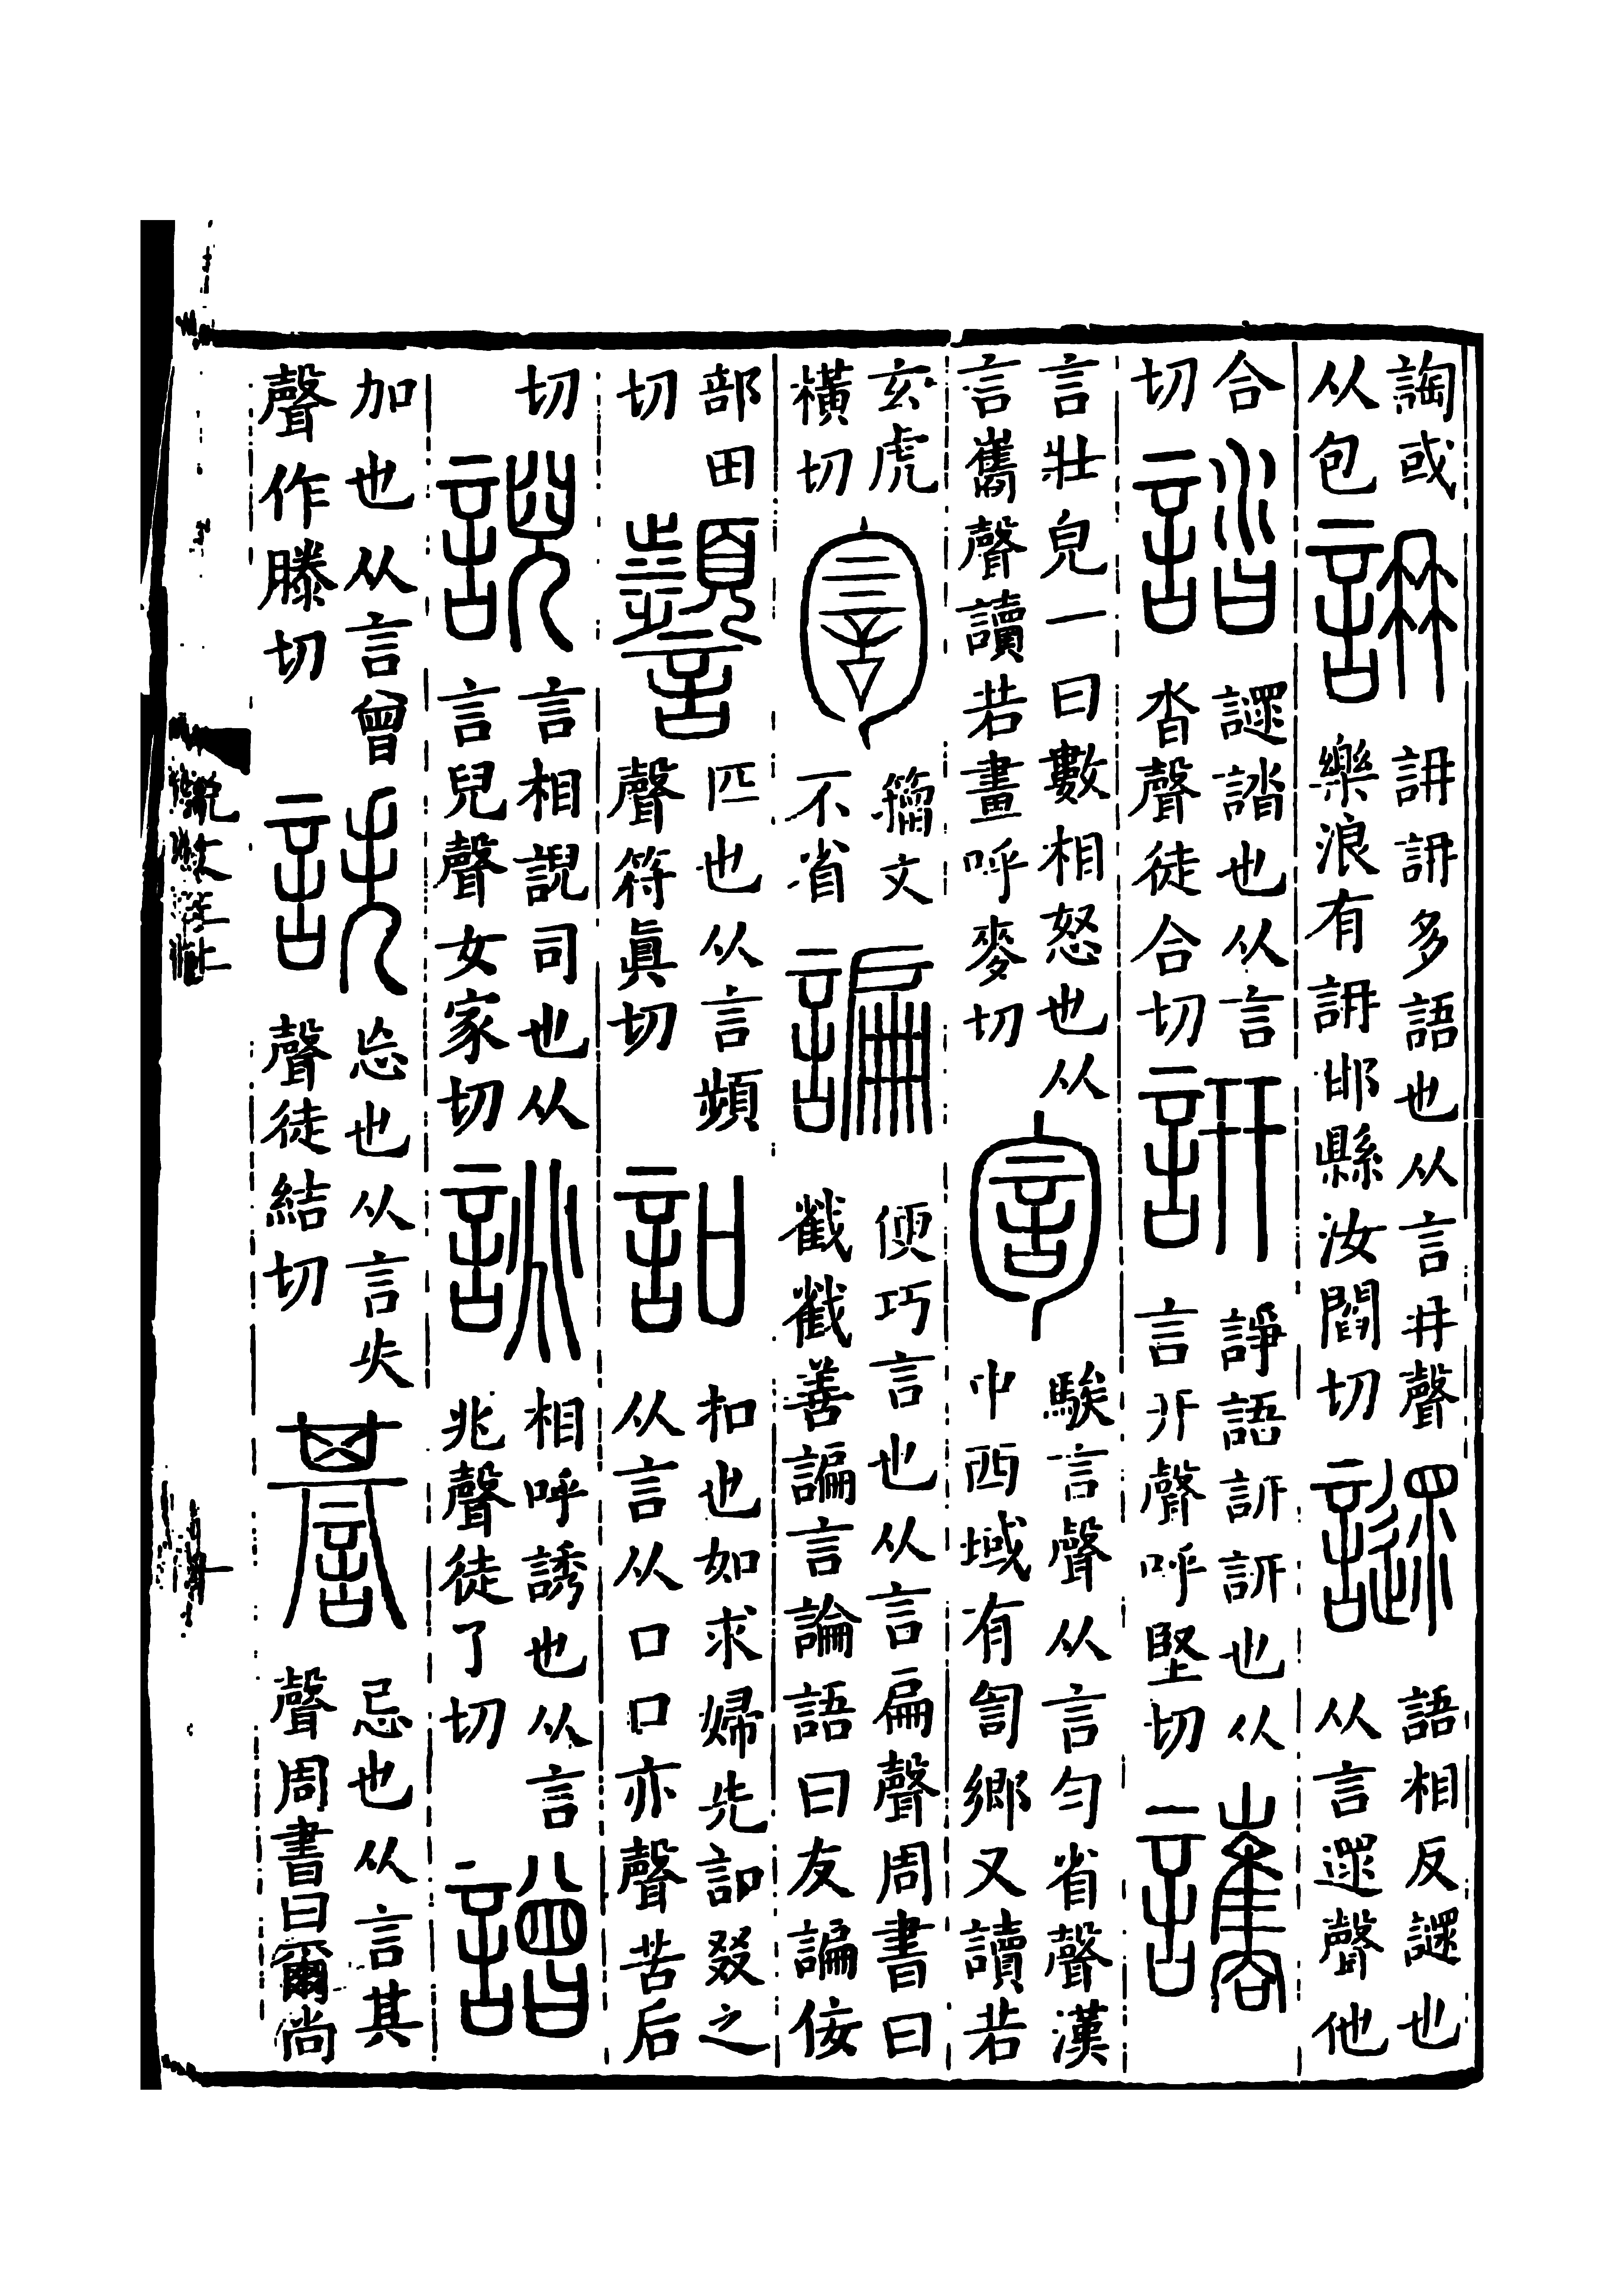 䛬或从包 䛁 䛁䛁多語也从言冄聲樂浪有䛁邯縣汝閻切 䜚 語相反䜚也从言遝聲他
合切 誻 䜚誻也从言沓聲徒合切 訮 諍語訮訮也从言幵聲呼堅切 讗
言壯皃一曰數相怒也从言巂聲讀若畫呼麥切 訇 騃言聲从言勻省聲漢中西域有訇鄉又讀若
玄虎橫切 籒文不省 諞 便巧言也从言扁聲周書曰𢧵𢧵善諞言論語曰友諞佞
部田切 匹也从言頻聲符眞切 訆 扣也如求婦先訆叕之从言从口口亦聲苦后
切 誽 言相誽司也从言兒聲女家切 誂 相呼誘也从言兆聲徒了切 譄
加也从言曾聲作滕切 詄 忘也从言失聲徒結切 諅 忌也从言其聲周書曰爾尚
說文三上